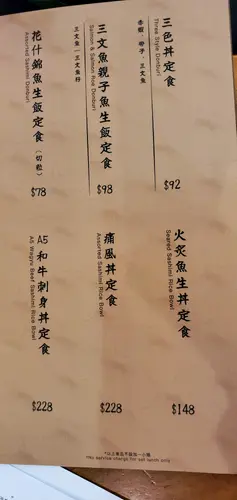 三色丼定食
Three Style Donburi
赤蝦．帶子．三文魚
$92
三文魚親子魚生飯定食
Salmon & Salmon Roe Donburi
三文魚 | 三文魚籽
$98
花什錦魚生飯定食（切粒）
Assorted Sashimi Donburi
$78
火炙魚生丼定食
Seared Sashimi Rice Bowl
$148
痛風丼定食
Assorted Sashimi Rice Bowl
$228
A5 和牛刺身丼定食
A5 Wagyu Beef Sashimi Rice Bowl
$228
*以上套店不設加一小服
*No service charge for set lunch only